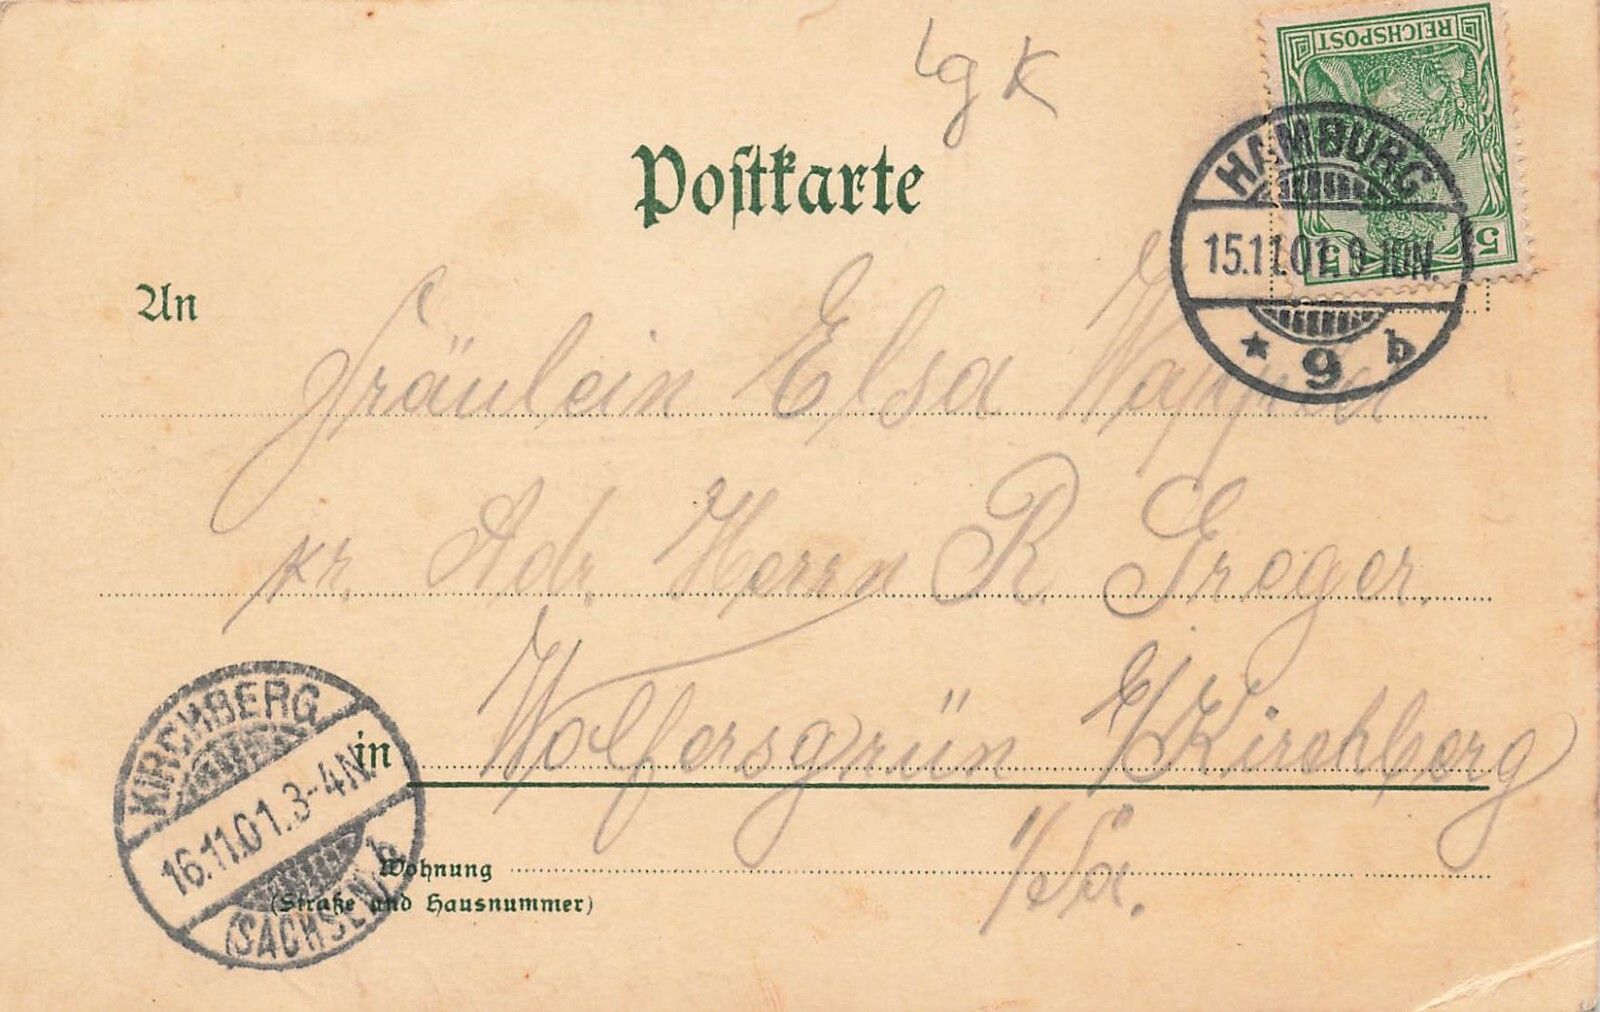 lg K
REICHSPOST
5 5
Postkarte
HAMBURG
15.11.01. 9-10N.
* 9 b
An
Fräulein Elsa
pr. Adr. Herrn R. Greger.
in
Wolfersgrün b/Kirchberg
i/Sa.
KIRCHBERG
16.11.01. 3-4N.
b
(SACHSEN)
Wohnung
(Straße und Hausnummer)